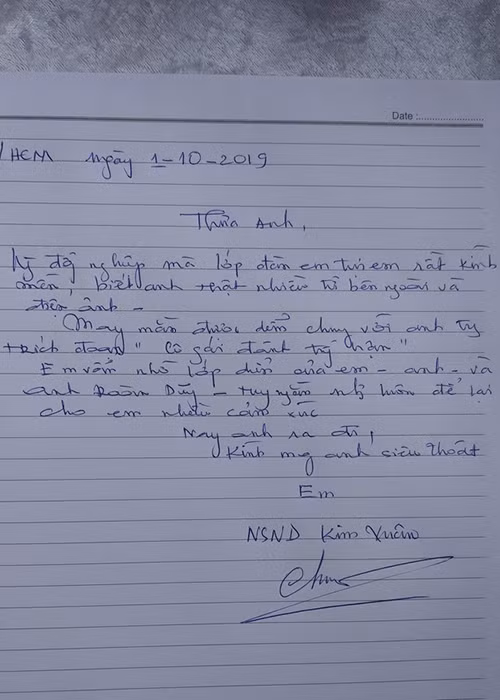 Date :
/HCM ngày 1-10-2019
Thưa Anh,
nghiệp mà lớp đàn em tụi em rất kính
mến, biết anh thật nhiều từ bên ngoài và
điện ảnh -
May mắn được diễn chung với anh
trích đoạn "Cô gái đánh
Em vẫn nhớ lớp diễn của em - anh - và
anh Đoàn Dũng - tuy ngắn luôn để lại
cho em nhiều cảm xúc
Nay anh ra đi,
Kính mg anh siêu thoát
Em
NSND Kim Xuân